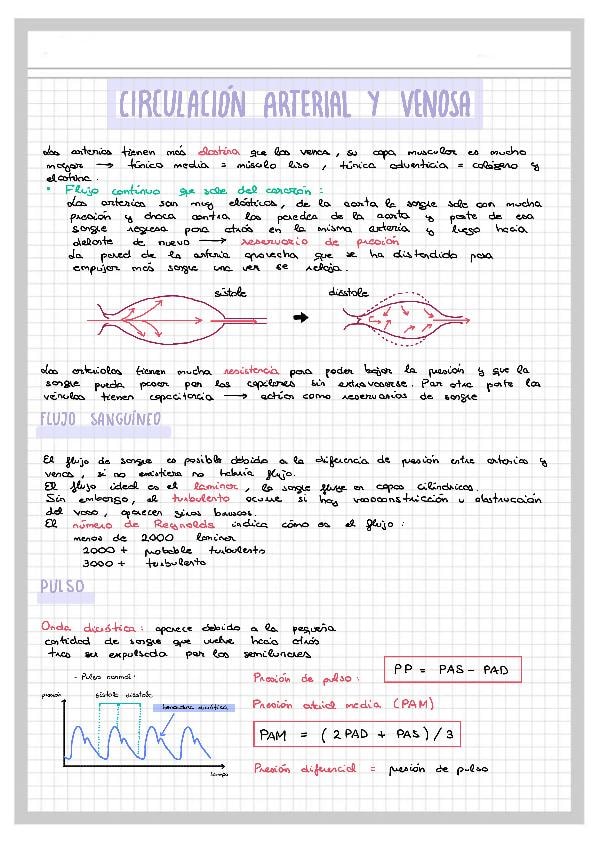 CIRCULACIÓN ARTERIAL Y VENOSA
Las arterias tienen más elastina que las venas, su capa muscular es mucho
mayor → túnica media = músculo liso, túnica adventicia = colágeno y
elastina.
• Flujo continuo que sale del corazón:
Las arterias son muy elásticas, de la aorta la sangre sale con mucha
presión y choca contra las paredes de la aorta y parte de esa
sangre regresa para atrás en la misma arteria y luego hacia
delante de nuevo → reservorio de presión
La pared de la arteria aprovecha que se ha distendido para
empujar más sangre una vez se relaja.
sístole diástole
Las arteriolas tienen mucha resistencia para poder bajar la presión y que la
sangre pueda pasar por los capilares sin extravasarse. Por otra parte las
vénulas tienen capacitancia → actúan como reservorios de sangre
FLUJO SANGUÍNEO
El flujo de sangre es posible debido a la diferencia de presión entre arterias y
venas, si no existiera no habría flujo.
El flujo ideal es el laminar, la sangre fluye en capas cilíndricas.
Sin embargo, el turbulento ocurre si hay vasoconstricción u obstrucción
del vaso, aparecen giros bruscos.
El número de Reynolds indica cómo es el flujo:
menos de 2000 laminar
2000 + probable turbulento
3000 + turbulento
PULSO
Onda dicrótica: aparece debido a la pequeña
cantidad de sangre que vuelve hacia atrás
tras ser expulsada por las semilunares
- Pulso normal:
presión sístole diástole
hendidura dicrótica
tiempo
Presión de pulso: PP = PAS - PAD
Presión arterial media (PAM)
PAM = (2PAD + PAS) / 3
Presión diferencial = presión de pulso